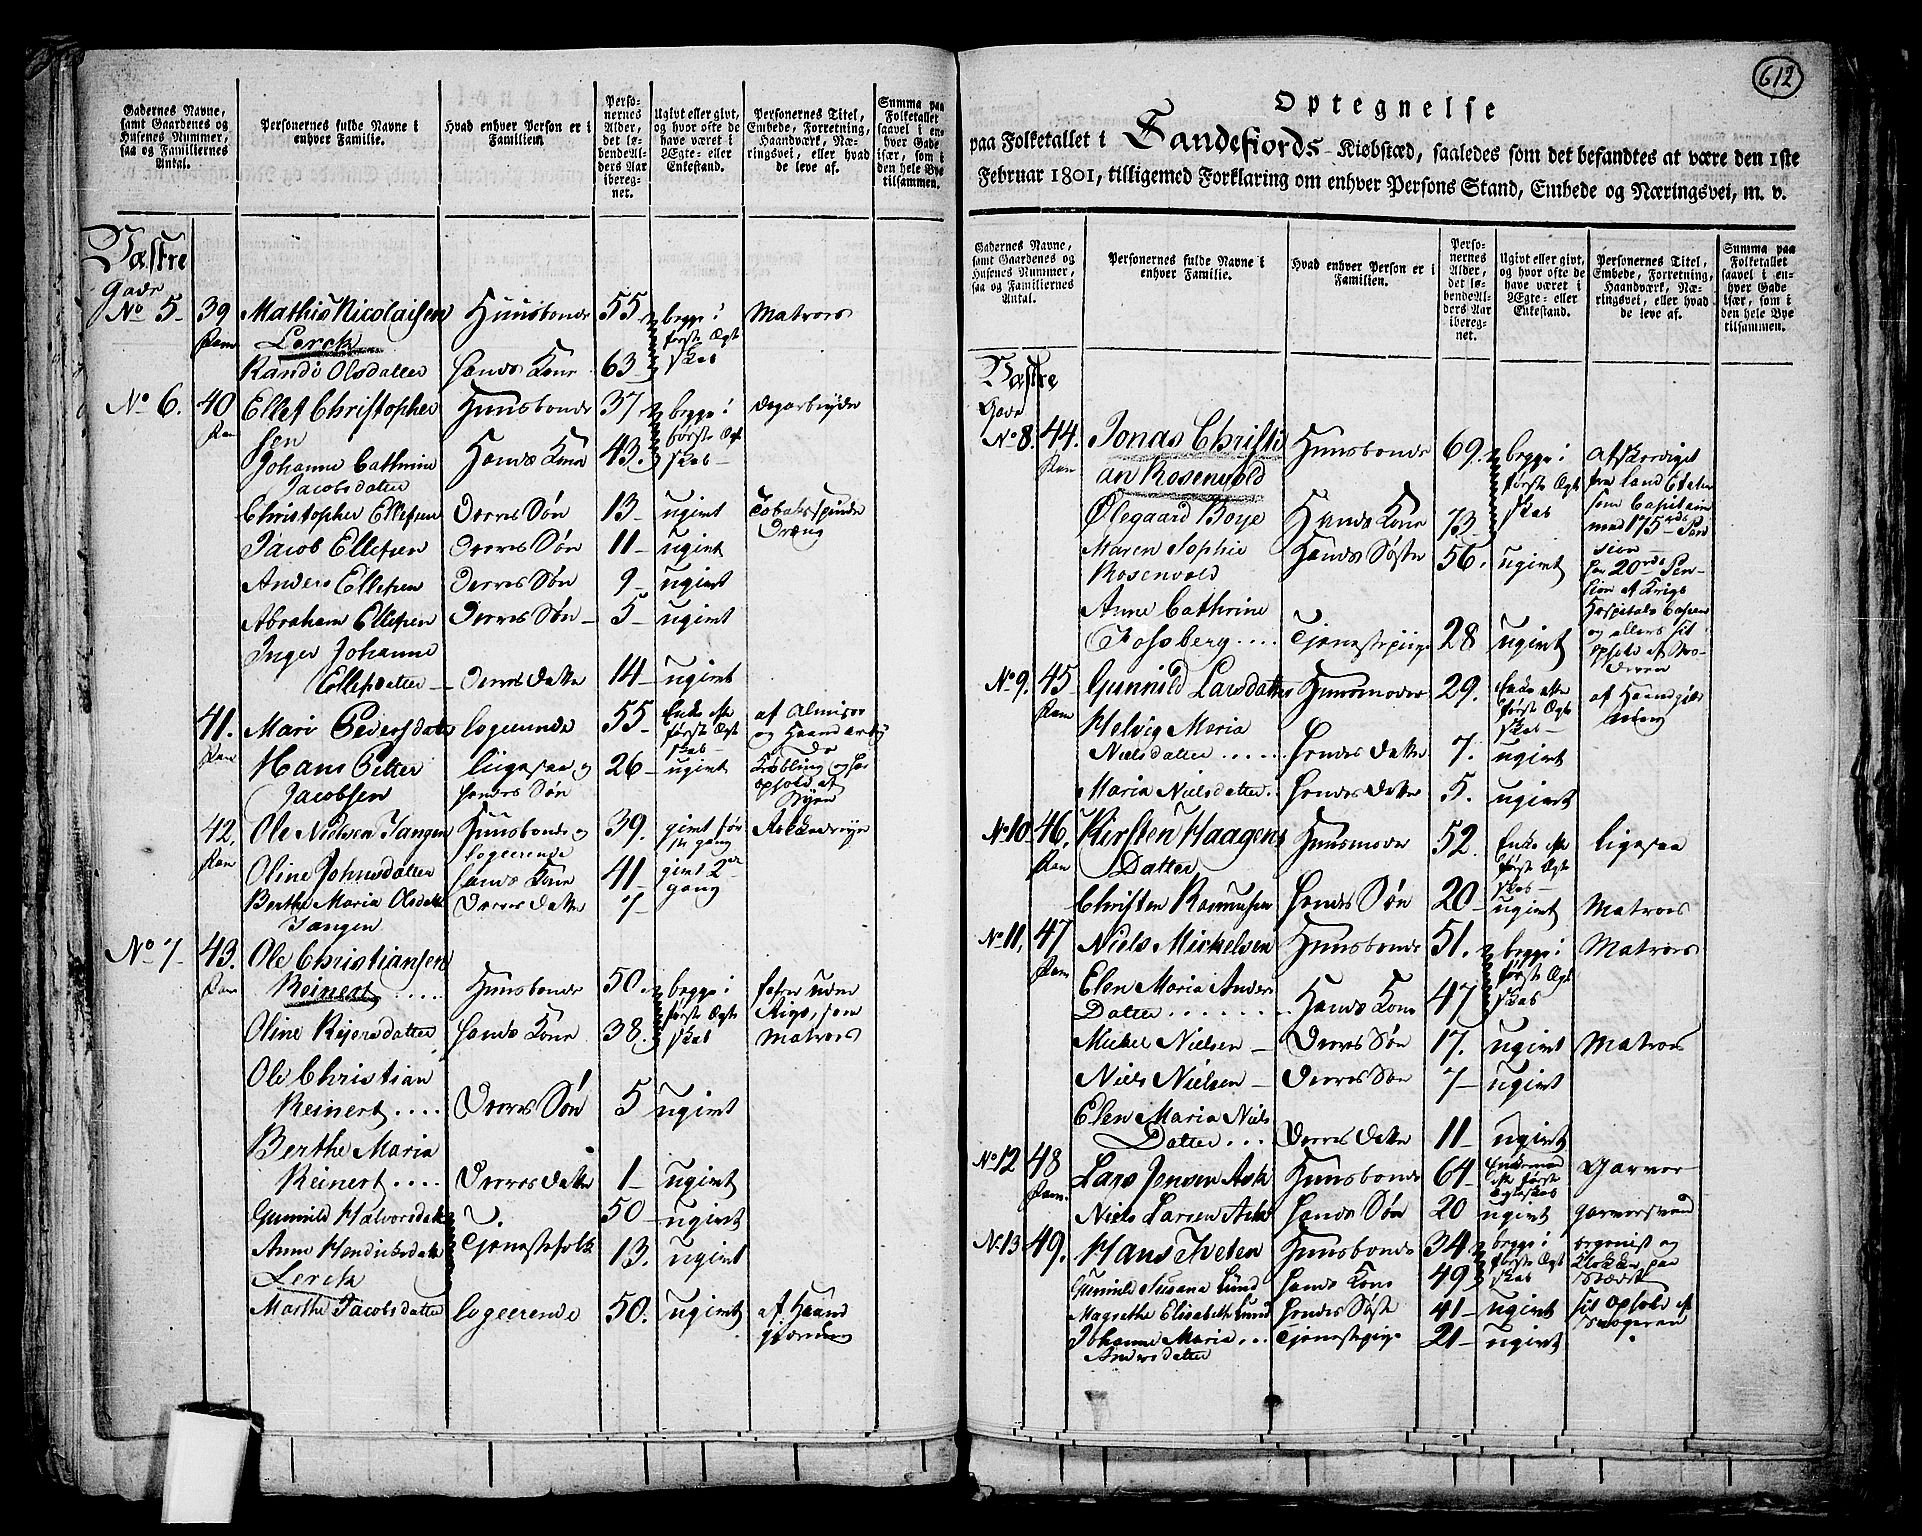 Gadernes Navne,
samt Gaardenes og
Husenes Nummer,
saa og Familiernes
Antal.
Personernes fulde Navne i
enhver Familie.
Hvad enhver Person er i
Familien.
Perso-
nernes
Alder,
det lø-
bende Al-
ders Aar
iberegnet.
Ugivt eller givt,
og hvor ofte de
have været i
Ægte- eller
Enkestand.
Personernes Titel,
Embede, Forretning,
Haandværk, Næ-
ringsvei, eller hvad
de leve af.
Summa paa
Folketallet
saavel i en-
hver Gade
især, som i
den hele Bye
tilsammen.
Væstre
Gade
No 5 39 Mathis Nicolaisen Huusbonde 55 begge i Matros
Fam Lerck første Ægt
Randi Olsdatter Hands Kone 63 skab
No 6. 40 Ellef Christopher Huusbonde 37 begge i dagarbeyder
Fam sen første Ægt
Johanne Cathrine Hands Kone 43. skab
Jacobsdatter
Christopher Ellefsen Deres Søn 13 ugivt Tobakspinder
Jacob Ellefsen Deres Søn 11 ugivt Dreng
Anders Ellefsen Deres Søn 9 ugivt
Abraham Ellefsen Deres Søn 5 ugivt
Inger Johanne
Ellefsdatter Deres Datter 14 ugivt
41. Mari Pedersdatter logerende 55 Enke efter af Almisse
Fam første Ægt og Haandarbey
skab de
Hans Petter ligesaa og 26 ugivt Krøbling og har
Jacobsen hendes Søn ophold af
Byen
42. Ole Nielsen Tangen Huusbonde og 39. givt før
Fam logerende 1te gang
Oline Johnsdatter hands Kone 41 givt 2den
Berthe Maria Olsdatter Deres Datter 7 gang
Tangen
No 7 43. Ole Christiansen
Fam Reinert .... Huusbonde 50. begge i farer uden
første Ægt Rigs, som
Oline Reiersdatter Hands Kone 38. skab Matros
Ole Christian
Reinert .... Deres Søn 5 ugivt
Berthe Maria
Reinert .... Deres Datter 1 ugivt
Gunnild Halvorsdatter 50 ugivt
Anne Hendriksdatter Tjenestefolk 13. ugivt
Lerck
Marthe Jacobsdatter logerende 50. ugivt af Haand
gierning
612
Optegnelse
paa Folketallet i Sandefiords Kiøbstæd, saaledes som det befandtes at være den 1ste
Februar 1801, tilligemed Forklaring om enhver Persons Stand, Embede og Næringsvei, m. v.
Gadernes Navne,
samt Gaardenes og
Husenes Nummer,
saa og Familiernes
Antal.
Personernes fulde Navne i
enhver Familie.
Hvad enhver Person er i
Familien.
Perso-
nernes
Alder,
det lø-
bende Al-
ders Aar
iberegnet.
Ugivt eller givt,
og hvor ofte de
have været i
Ægte- eller
Enkestand.
Personernes Titel,
Embede, Forretning,
Haandværk, Næ-
ringsvei, eller hvad
de leve af.
Summa paa
Folketallet
saavel i en-
hver Gade
især, som i
den hele Bye
tilsammen.
Væstre
Gade
No 8. 44. Jonas Christi Huusbonde 69. begge i afskediget
Fam an Rosenvold første Ægt fra Land Etaten
skab som Capitain
Ølegaard Boye Hands Kone 73 med 175 rd Pen
Maren Sophie Hands Søster 56. ugivt sion
Rosenvold har 20 rd Pen-
sion af Krigs
Anne Cathrine Hospitals Cassen
Fossberg .... Tjenestepiige 28 ugivt og ellers sit
ophold af Bro-
deren
No 9. 45 Gunnild Larsdatter Huusmoder 29. Enke efter af Haandgier
Fam første Ægt ning
Helvig Maria skab
Nielsdatter ..... Hendes Datter 7. ugivt
Maria Nielsdatter. Hendes Datter 5. ugivt
No 10 46. Kirsten Haagens Huusmoder 52. Enke efter ligesaa
Fam Datter første Ægt
skab
Christen Rasmusen Hendes Søn 20 ugivt Matros
No 11. 47 Niels Mickelsen Huusbonde 51. begge i Matros
Fam Elen Maria Anders første Ægt
Datter ....... Hands Kone 47 skab
Mickel Nielsen Deres Søn 17. ugivt Matros
Niels Nielsen Deres Søn 7 ugivt
Elen Maria Niels
Datter ... Deres Datter 11 ugivt
No 12 48 Lars Jensen Ask Huusbonde 64 Enkemand Garver
Fam. efter første
Ægteskab
Niels Larsen Ask Hands Søn 20 ugivt garversvend
No 13 49. Hans Tveten Huusbonde 34 begge i organist og
første Ægt Klokker paa
Gunnild Susana Lund Hands Kone 49 skab Stædet
Magrethe Elisabeth Lund Hendes Søster 41 ugivt sit ophold af
Johanne Maria ... Tjenestepige 21 ugivt Svogeren
Andersdatter